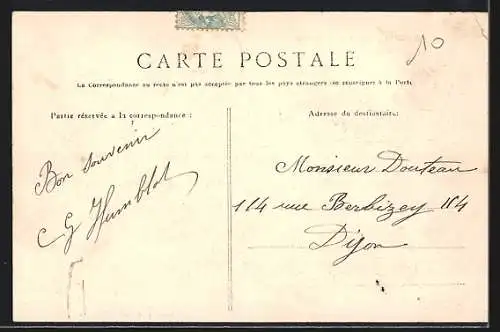 10
CARTE POSTALE
La Correspondance au recto n'est pas acceptée par tous les pays étrangers (se renseigner à la Poste
Partie réservée à la correspondance :
Adresse du destinataire:
Bon souvenir
G Humblot
Monsieur Douteau
114 rue Berbizey 114
Dijon